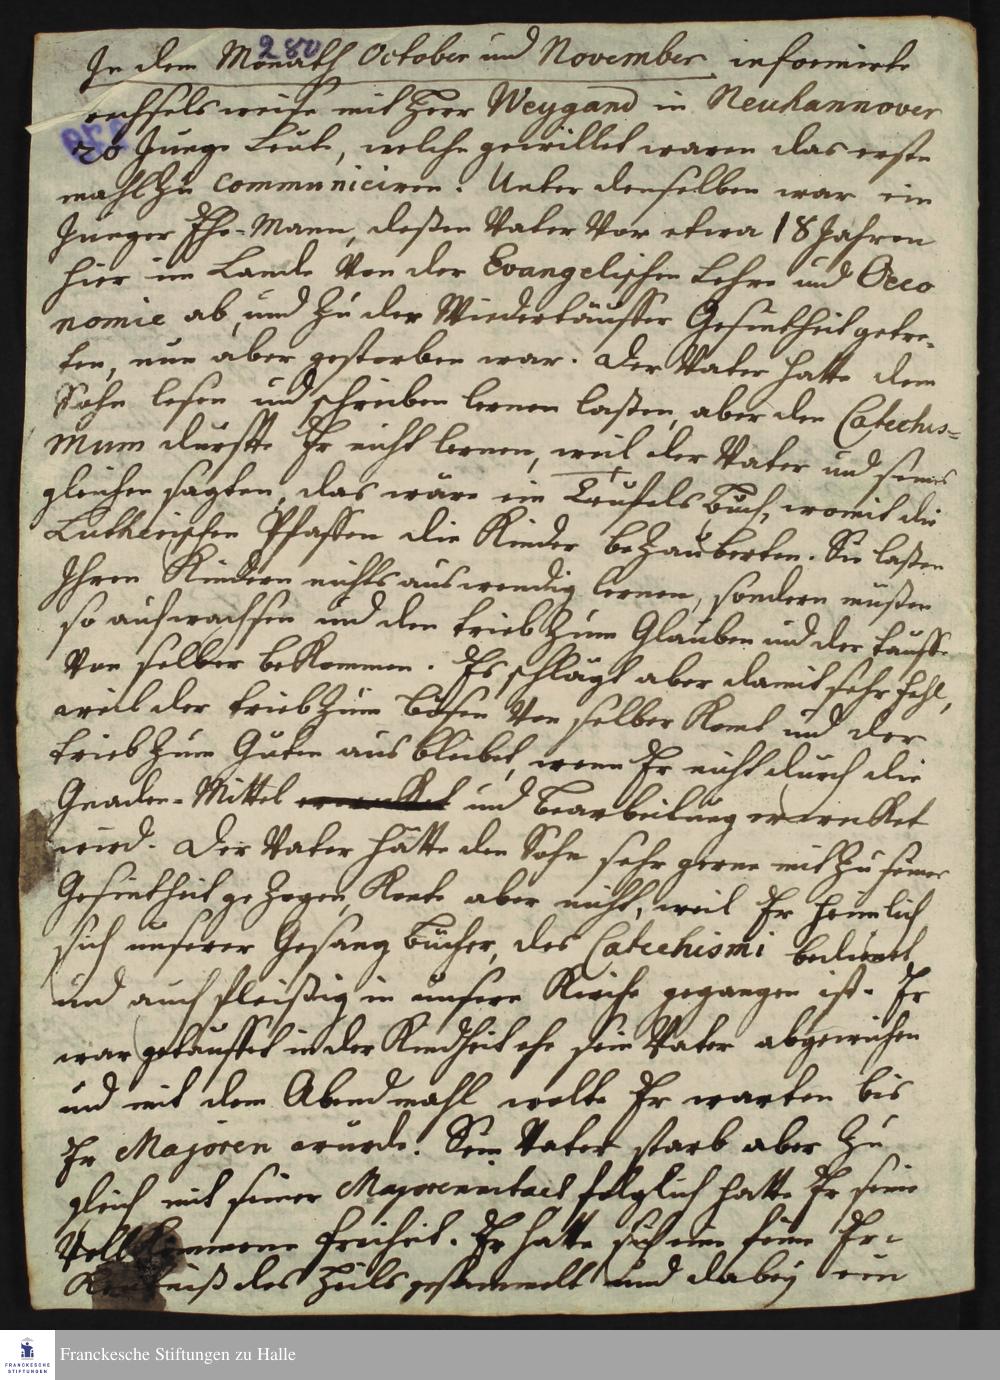 280
In dem Monath October und November informirte
wechselsweise mit Herr Weygand in Neuhannover
26 Junge Leute, welche gewillet waren das erste
mahl zu communiciren. Unter denselben war ein
Junger Ehe-Mann, deßen Vater vor etwa 18 Jahren
hier im Lande von der Evangelischen Lehre und Oeco
nomie ab, und zu der Wiedertäuffer Gesintheit getre-
ten, nun aber gestorben war. Der Vater hatte dem
Sohn lesen und schreiben lernen laßen, aber den Catechis=
mum durffte Er nicht lernen, weil der Vater und seines
gleichen sagten, das wäre ein Teufels Buch, womit die
Lutherischen Pfaffen die Kinder bezauberten. Sie laßen
Ihren Kindern nichts auswendig lernen, sondern müßen
so aufwachsen und den trieb zum Glauben und der tauffe
von selber bekommen. Es schlägt aber damit sehr fehl,
weil der trieb zum Bösen von selber komt und der
trieb zum Guten aus bleibet, wenn Er nicht durch die
Gnaden-Mittel und Bearbeitung erwecket
wird. Der Vater hätte den Sohn sehr gerne mit zu seiner
Gesintheit gezogen, konte aber nicht, weil Er heimlich
sich unserer Gesang Bücher, des Catechismi bedienet
und auch fleißig in unsere Kirche gegangen ist. Er
war getauffet in der Kindheit ehe sein Vater abgewichen
und mit dem Abendmahl wolte Er warten bis
Er Majoren wurde. Sein Vater starb aber zu
gleich mit seiner Majorennitaet folglich hatte Er seine
Vollkommene Freiheit. Er hatte sich eine feine Er-
kentniß des Heils gesammelt und dabey ein
FRANCKESCHE
STIFTUNGEN
Franckesche Stiftungen zu Halle